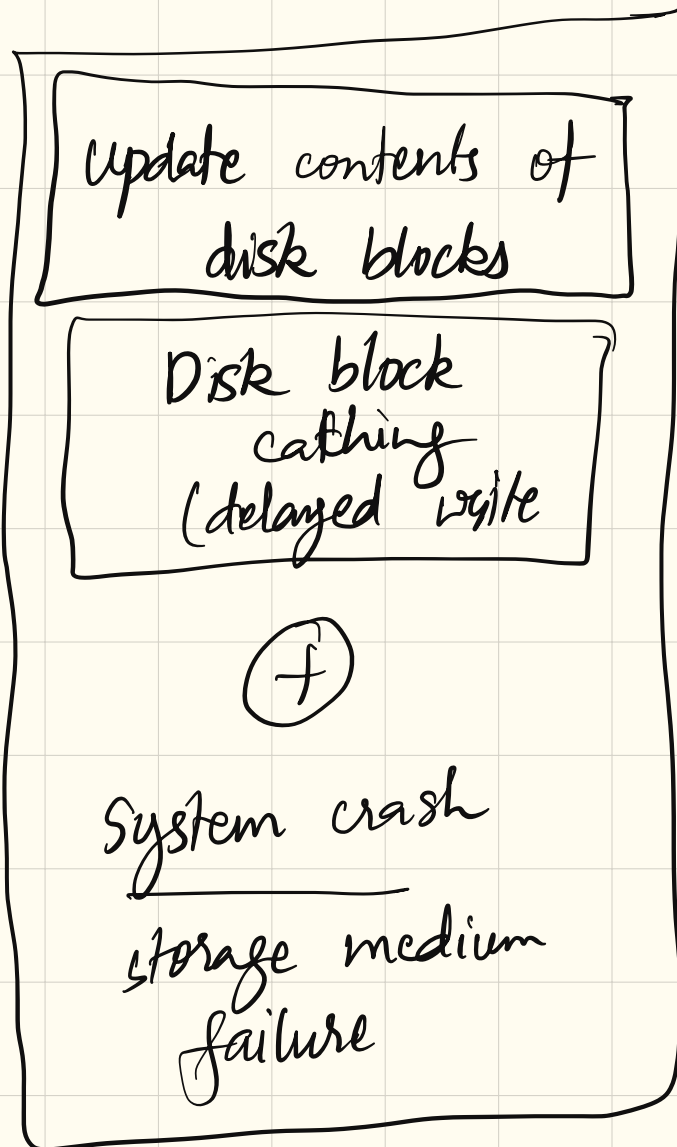 Update contents of
disk blocks
Disk block
cathing
(delayed write
+
System crash
storage medium
failure